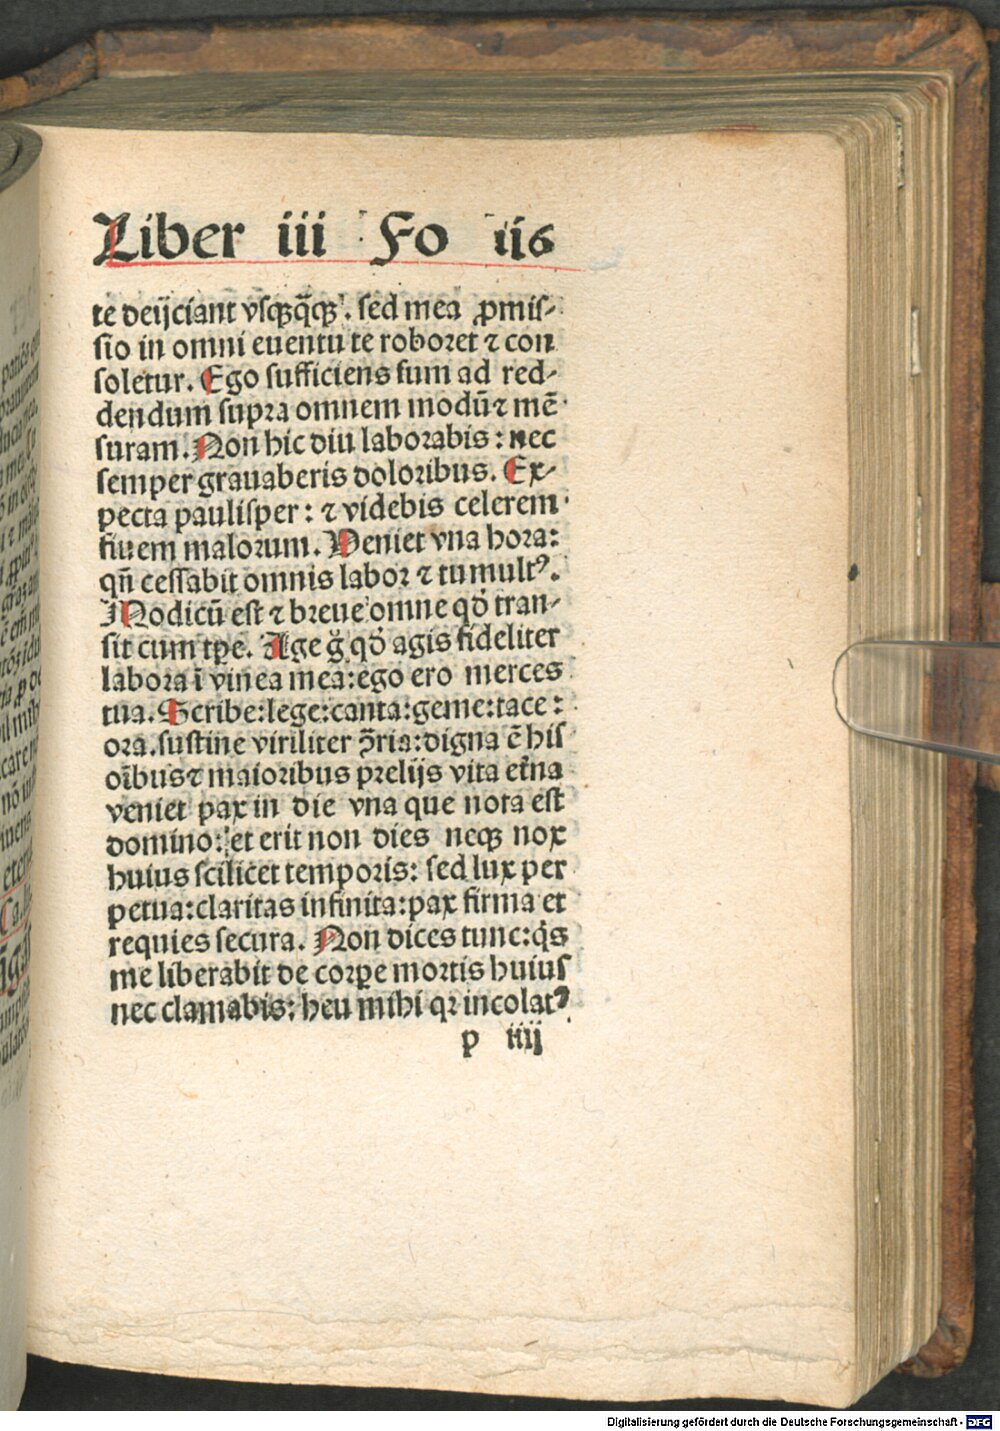 Liber iii Fo ii6
te deijciant vsqꝫq̄qꝫ. sed mea ꝓmis⸗
sio in omni euentu te roboret ⁊ con
soletur. Ego sufficiens sum ad red⸗
dendum supra omnem modū ⁊ mē
suram. Non hic diu laborabis: nec
semper grauaberis doloribus. Ex⸗
pecta paulisper: ⁊ videbis celerem
finem malorum. Veniet vna hora:
qn̄ cessabit omnis labor ⁊ tumultꝰ.
Modicū est ⁊ breue omne qď tran⸗
sit cum tꝑe. Age g̊ qď agis fideliter
labora ī vinea mea: ego ero merces
tua. Scribe: lege: canta: geme: tace:
ora. sustine viriliter ɔ̄ria: digna ē his
oībus ⁊ maioribus prelijs vita et̄na
veniet pax in die vna que nota est
domino: et erit non dies neqꝫ nox
huius scilicet temporis: sed lux per
petua: claritas infinita: pax firma et
requies secura. Non dices tunc: q̇s
me liberabit de corꝑe mortis huius
nec clamabis: heu mihi qꝛ incolatꝰ
p iiij
Digitalisierung gefördert durch die Deutsche Forschungsgemeinschaft - DFG